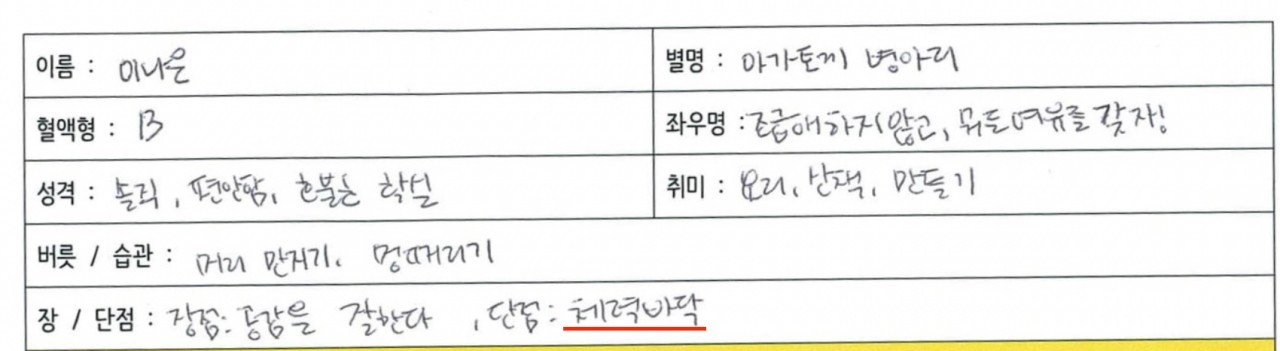 이름 : 이나은
별명 : 아가토끼 병아리
혈액형 : B
좌우명 : 조급해하지않고, 뭐든여유를 갖자!
성격 : 솔직, 편안함, 호불호 확실
취미 : 요리, 산책, 만들기
버릇 / 습관 : 머리 만지기, 멍때리기
장 / 단점 : 장점: 공감을 잘한다 , 단점: 체력바닥